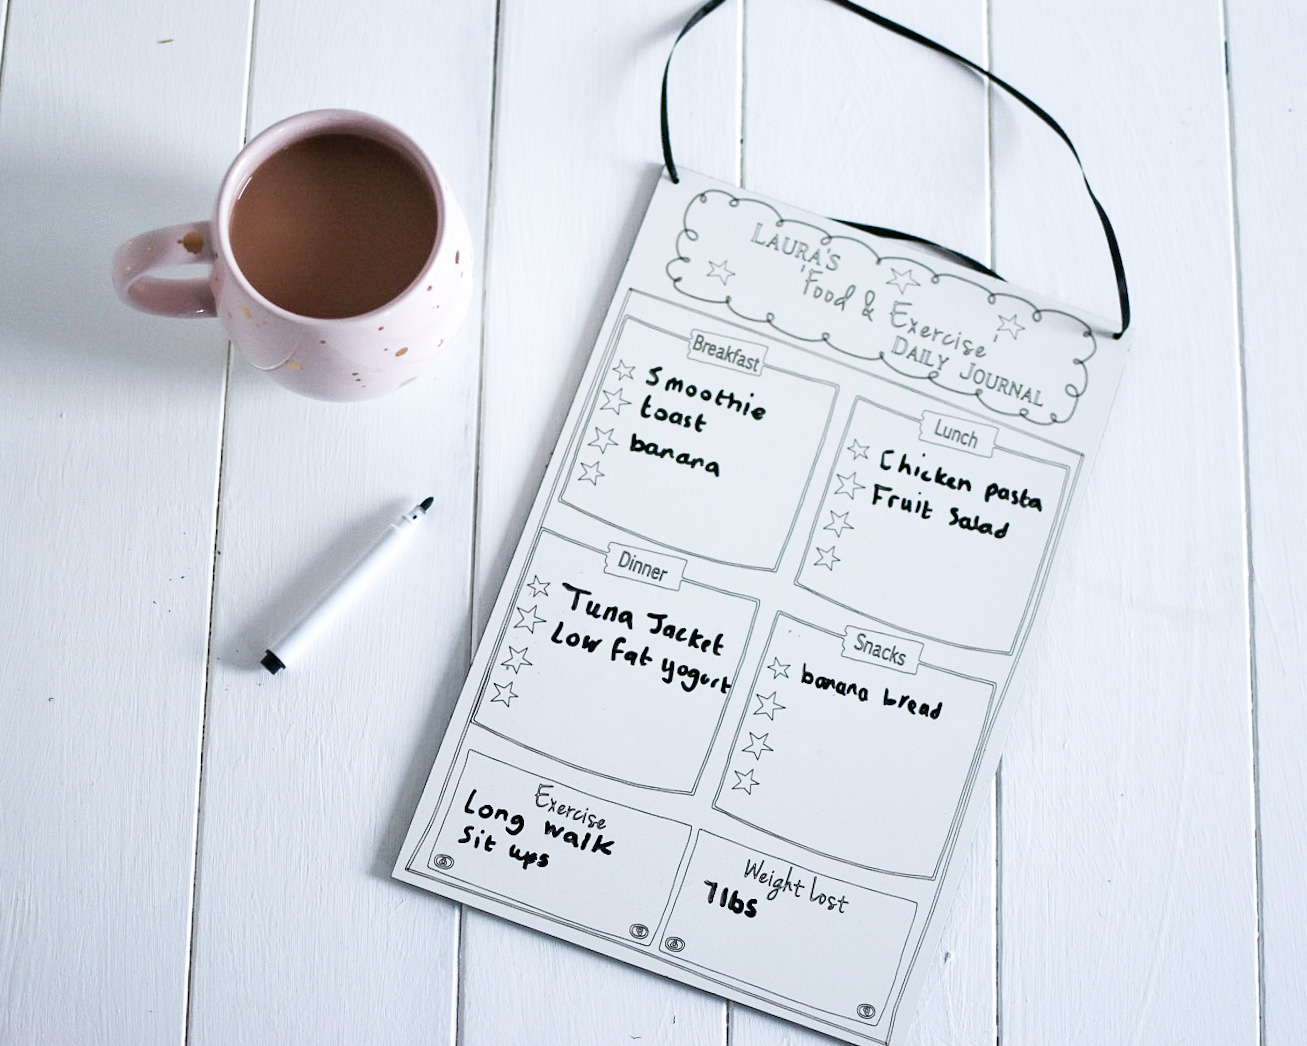 LAURA'S
'Food & Exercise'
DAILY JOURNAL
Breakfast
Smoothie
toast
banana
Lunch
Chicken pasta
Fruit Salad
Dinner
Tuna Jacket
Low fat yogurt
Snacks
banana bread
Exercise
Long walk
Sit ups
Weight lost
7lbs